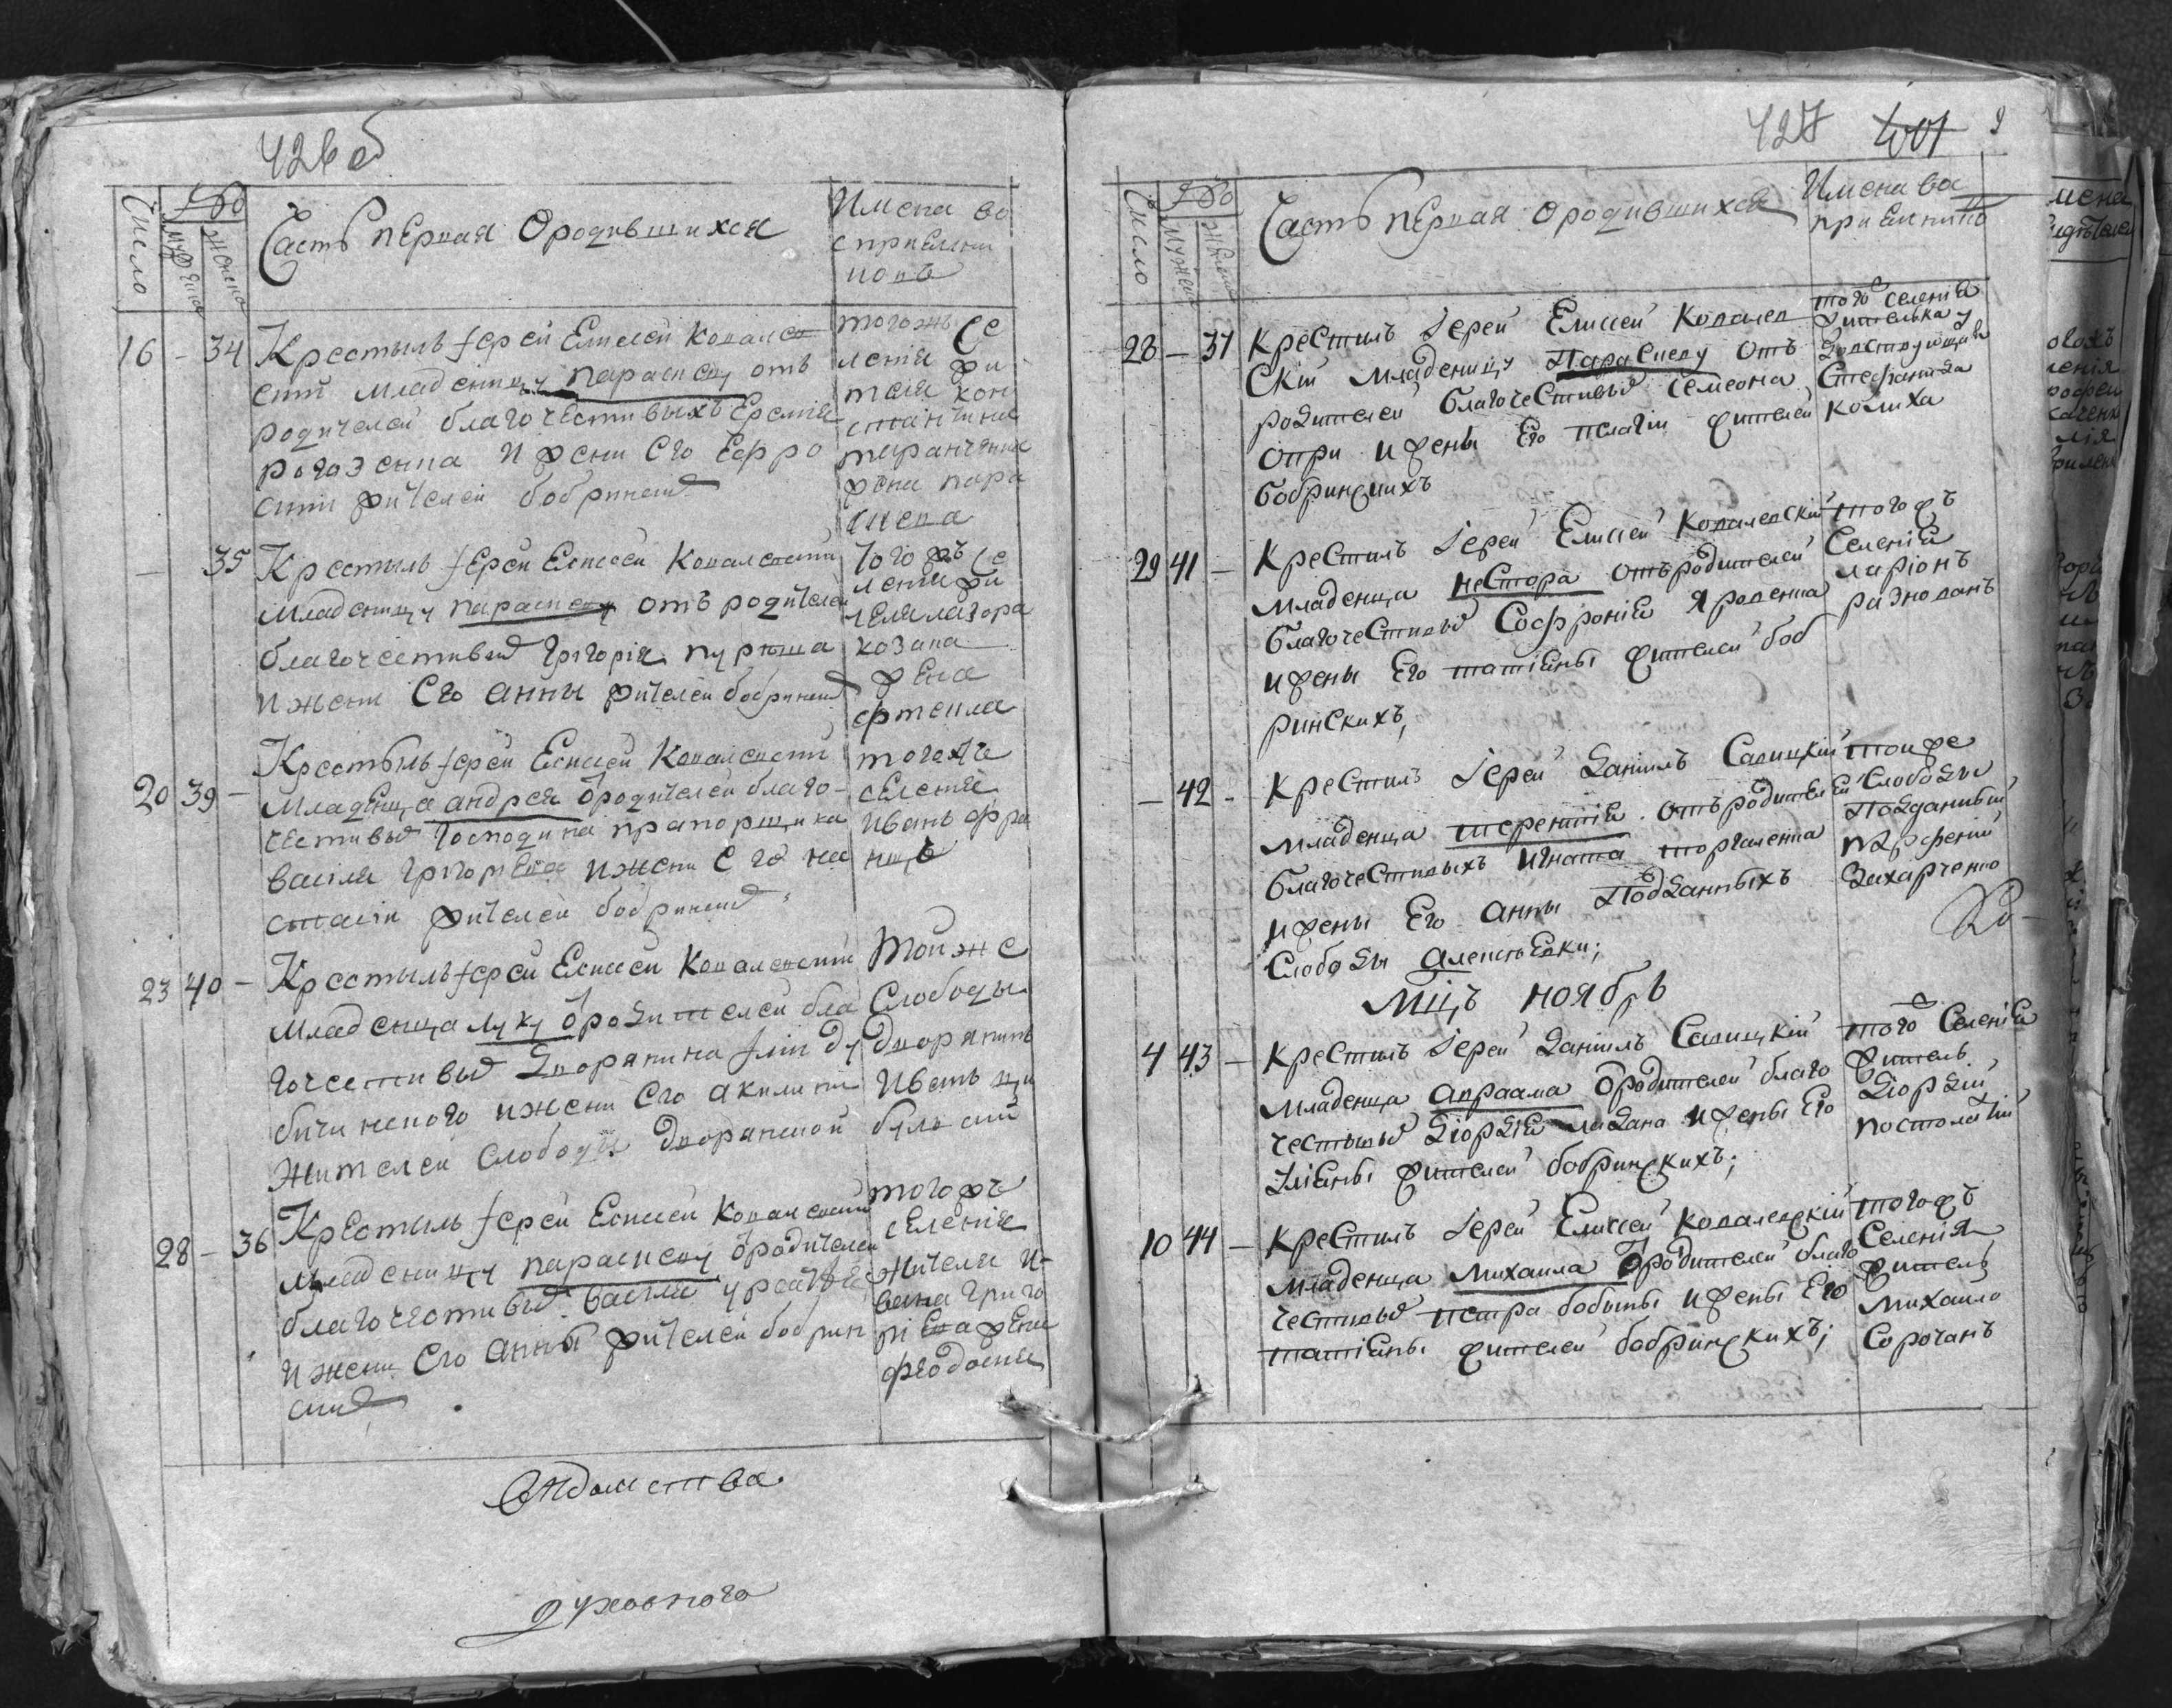 426 об
Число
Мужеска
Женска
Часть первая о родившихся
Имена во
сприемни
ковъ
16 - 34
Крестилъ іерей Елисей Ковалев
скій младеницу параскеву отъ
родителей благочестивыхъ Еремія
рогозенка и жени Его Ефро
синіи жителей бобринскихъ
тогожъ се
ленія жи
теля кон
стантина
таранченка
жена пара
скева
— 35
Крестилъ іерей Елисей Ковалевскій
младеницу параскеву отъ родителей
благочестивых григорія
и жени Его анны жителей бобринских
того жъ се
ленія жи
теля лазора
козака
жена
20 39 -
Крестилъ іерей Елисей Ковалевскій
младенца андрея ѿ родителей благо-
честивых господина прапорщика
василя григориева и жени Его на
стасіи жителей бобринских
того же
селенія
Иванъ фра
23 40 -
Крестилъ іерей Елисей Ковалевскій
младенца луку ѿ родителей бла
гочестивых дворянина
и жени Его акилини
жителей слободы дворянской
той же
слободы
дворянинъ
Иванъ ци
бульскій
28 - 36
Крестилъ іерей Елисей Ковалевскій
младеницу параскеву ѿ родителей
благочестивых василя
и жени Его анны жителей бобрин
ских
того жъ
селенія
жителя и-
вана григо
ріева жена
феодосия
Ведомства
духовного
427 401 9
Число
Мужеска
Женска
Часть первая о родившихся
Имена вос
приемниковъ
28 - 37
Крестилъ іерей Елисей Ковалев
скій младеницу Параскеву отъ
родителей благочестивых семеона
и жены Его пелагіи жителей
бобринскихъ
того селенія
жителька
Стефанида
колиха
29 41 -
Крестилъ іерей Елисей Ковалевскій
младенца нестора отъ родителей
благочестивых Софронія яровенка
и жены Его татіяны жителей боб
ринскихъ,
того жъ
селенія
ларіонъ
разнованъ
— 42 -
Крестилъ іерей Даніилъ Савицкій
младенца терентія отъ родителей
благочестивыхъ игната
и жены Его анны подданныхъ
слободы алексѣевки;
той же
слободы
подданный
парфений
Захарченко
Мцъ ноябрь
4 43 -
Крестилъ іерей Даніилъ Савицкій
младенца авраама ѿ родителей благо
честивых діордія и жены Его
Уліаны жителей бобринскихъ;
того селенія
житель
діордій
постолатій
10 44 -
Крестилъ іерей Елисей Ковалевскій
младенца михаила ѿ родителей благо
честивых петра бобыны и жены Его
татіяны жителей бобринскихъ;
того жъ
селенія
житель
михаило
Сорочанъ